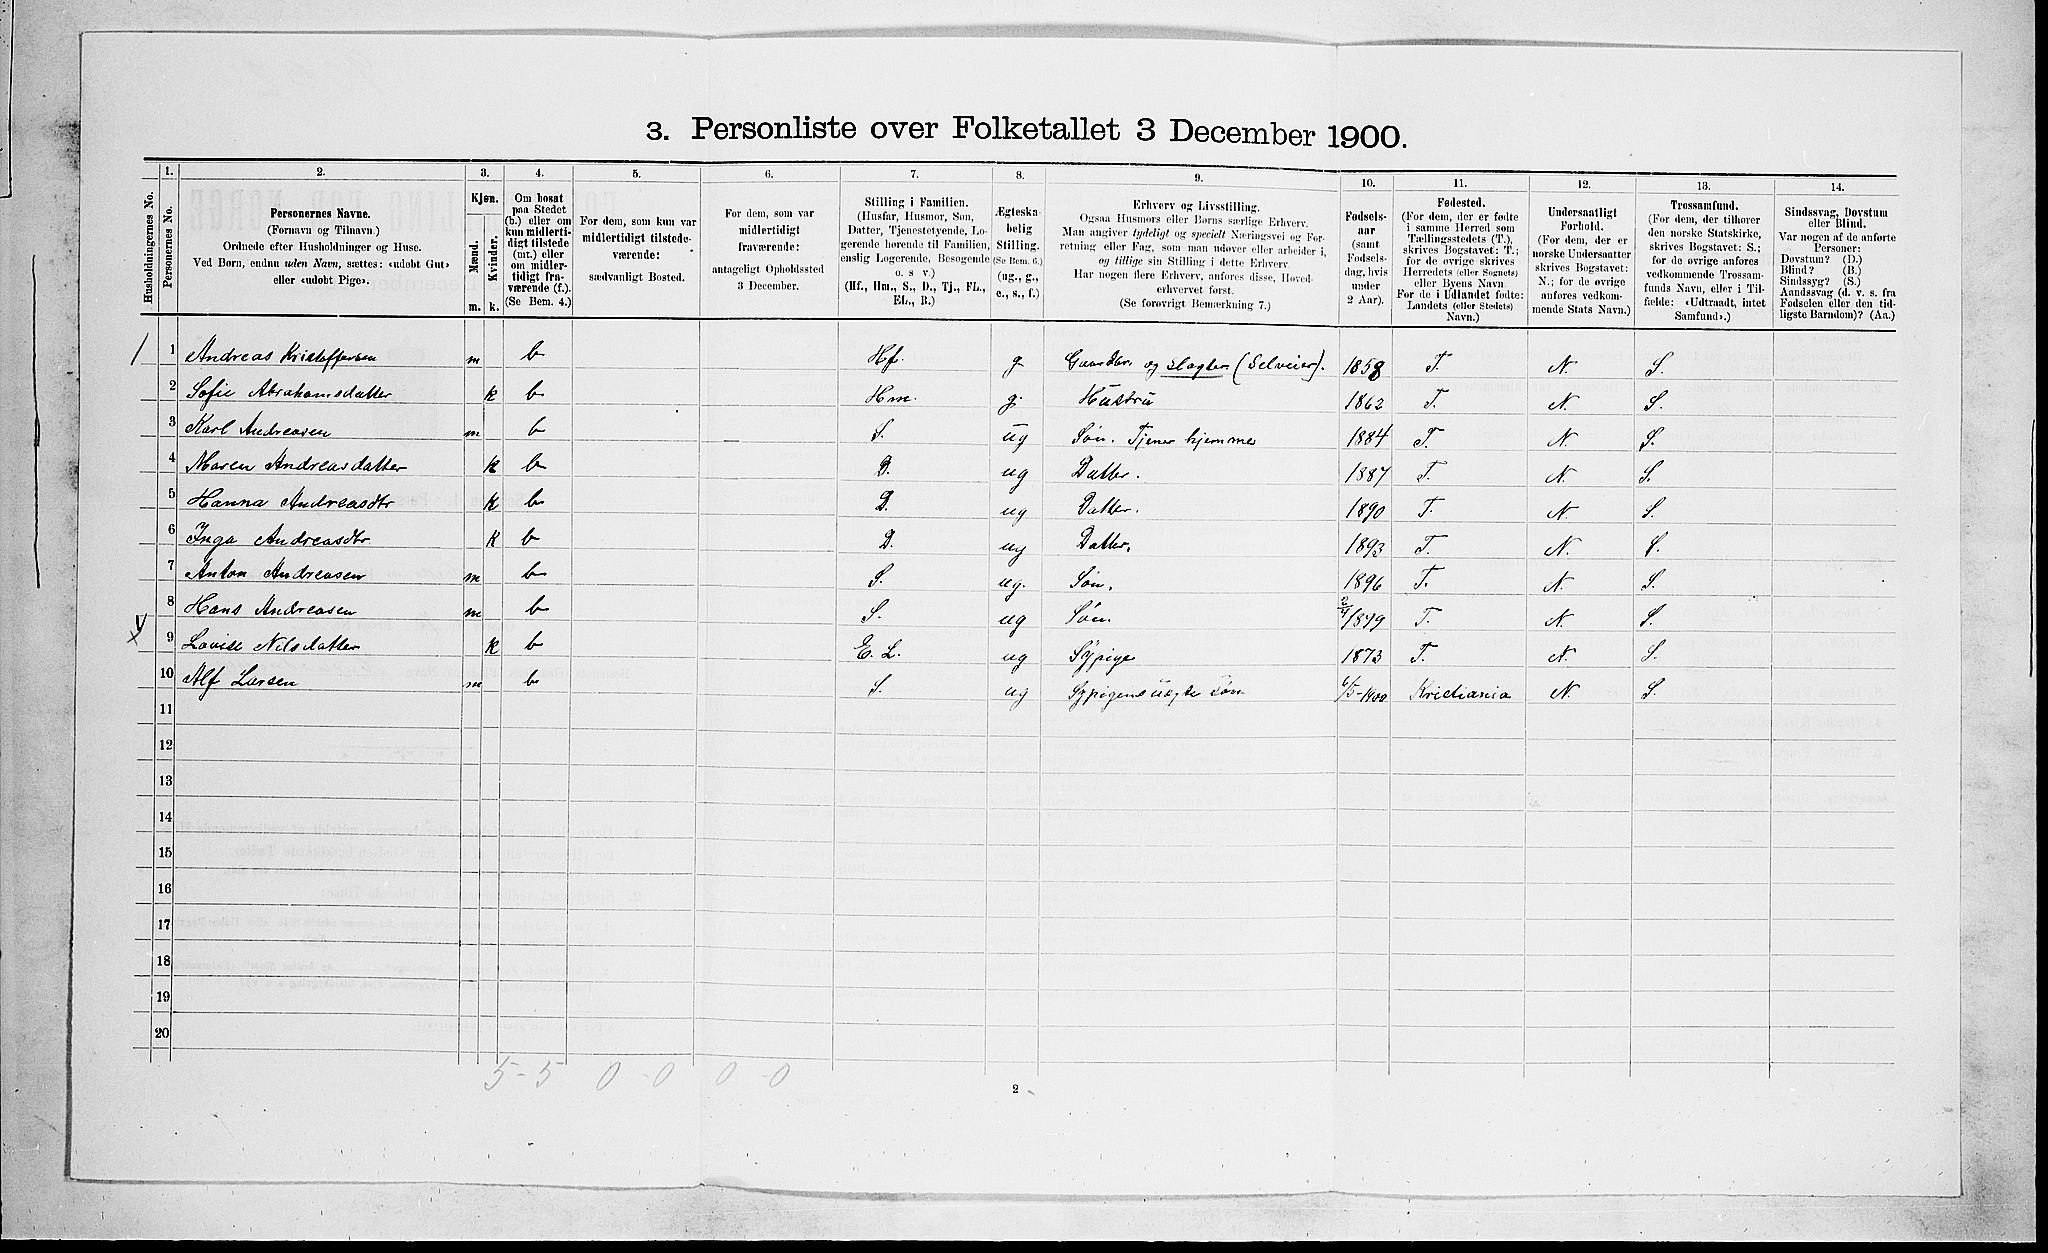 3. Personliste over Folketallet 3 December 1900.
Husholdningernes No.
1. Personernes No.
2. Personernes Navne. (Fornavn og Tilnavn.) Ordnede efter Husholdninger og Huse. Ved Børn, endnu uden Navn, sættes: «udøbt Gut» eller «udøbt Pige».
3. Kjøn. Mænd. m. Kvinder. k.
4. Om bosat paa Stedet (b.) eller om kun midlertidigt tilstede (mt.) eller om midlertidigt fraværende (f.). (Se Bem. 4.)
5. For dem, som kun var midlertidigt tilstedeværende: sædvanligt Bosted.
6. For dem, som var midlertidigt fraværende: antageligt Opholdssted 3 December.
7. Stilling i Familien. (Husfar, Husmor, Søn, Datter, Tjenestetyende, Logerende hørende til Familien, enslig Logerende, Besøgende o. s v.) (Hf., Hm., S., D., Tj., FL., EL., B.)
8. Ægteskabelig Stilling. (Se Bem. 6.) (ug., g., e., s., f.)
9. Erhverv og Livsstilling. Ogsaa Husmors eller Børns særlige Erhverv. Man angiver tydeligt og specielt Næringsvei og Forretning eller Fag, som man udøver eller arbeider i, og tillige sin Stilling i dette Erhverv. Har nogen flere Erhverv, anføres disse, Hovederhvervet først. (Se forøvrigt Bemærkning 7.)
10. Fødselsaar (samt Fødselsdag, hvis under 2 Aar).
11. Fødested. (For dem, der er fødte i samme Herred som Tællingsstedets (T.), skrives Bogstavet: T.; for de øvrige skrives Herredets (eller Sognets) eller Byens Navn. For de i Udlandet fødte: Landets (eller Stedets) Navn.)
12. Undersaatligt Forhold. (For dem, der er norske Undersaatter skrives Bogstavet: N.; for de øvrige anføres vedkommende Stats Navn.)
13. Trossamfund. (For dem, der tilhører den norske Statskirke, skrives Bogstavet: S.; for de øvrige anføres vedkommende Trossamfunds Navn, eller i Tilfælde: «Udtraadt, intet Samfund».)
14. Sindssvag, Døvstum eller Blind. Var nogen af de anførte Personer: Døvstum? (D.) Blind? (B.) Sindssyg? (S.) Aandssvag (d. v. s. fra Fødselen eller den tidligste Barndom)? (Aa.)
1 1 Andreas Kristoffersen m b Hf. g Gaardbr. og slagter (Selveier). 1858 T. N. S.
2 Sofie Abrahamsdatter k b Hm. g. Hustru 1862 T. N. S.
3 Karl Andreasen m b S. ug Søn. Tjener hjemme 1884 T. N. S.
4 Maren Andreasdatter k b D. ug Datter. 1887 T. N. S.
5 Hanna Andreasdtr k b D. ug Datter. 1890 T. N. S.
6 Inga Andreasdtr k b D. ug Datter. 1893 T. N. S.
7 Anton Andreasen m b S. ug. Søn. 1896 T. N. S.
8 Hans Andreasen m b S. ug Søn. 1899 T. N. S.
x 9 Lovise Nilsdatter k b E. L. ug Sypige 1873 T. N. S.
10 Alf Larsen m b S. ug Sypigens uægte Søn 6/5-1900 Kristiania N. S.
11
12
13
14
15
16
17
18
19
20
5 - 5 0 - 0 0 - 0
2